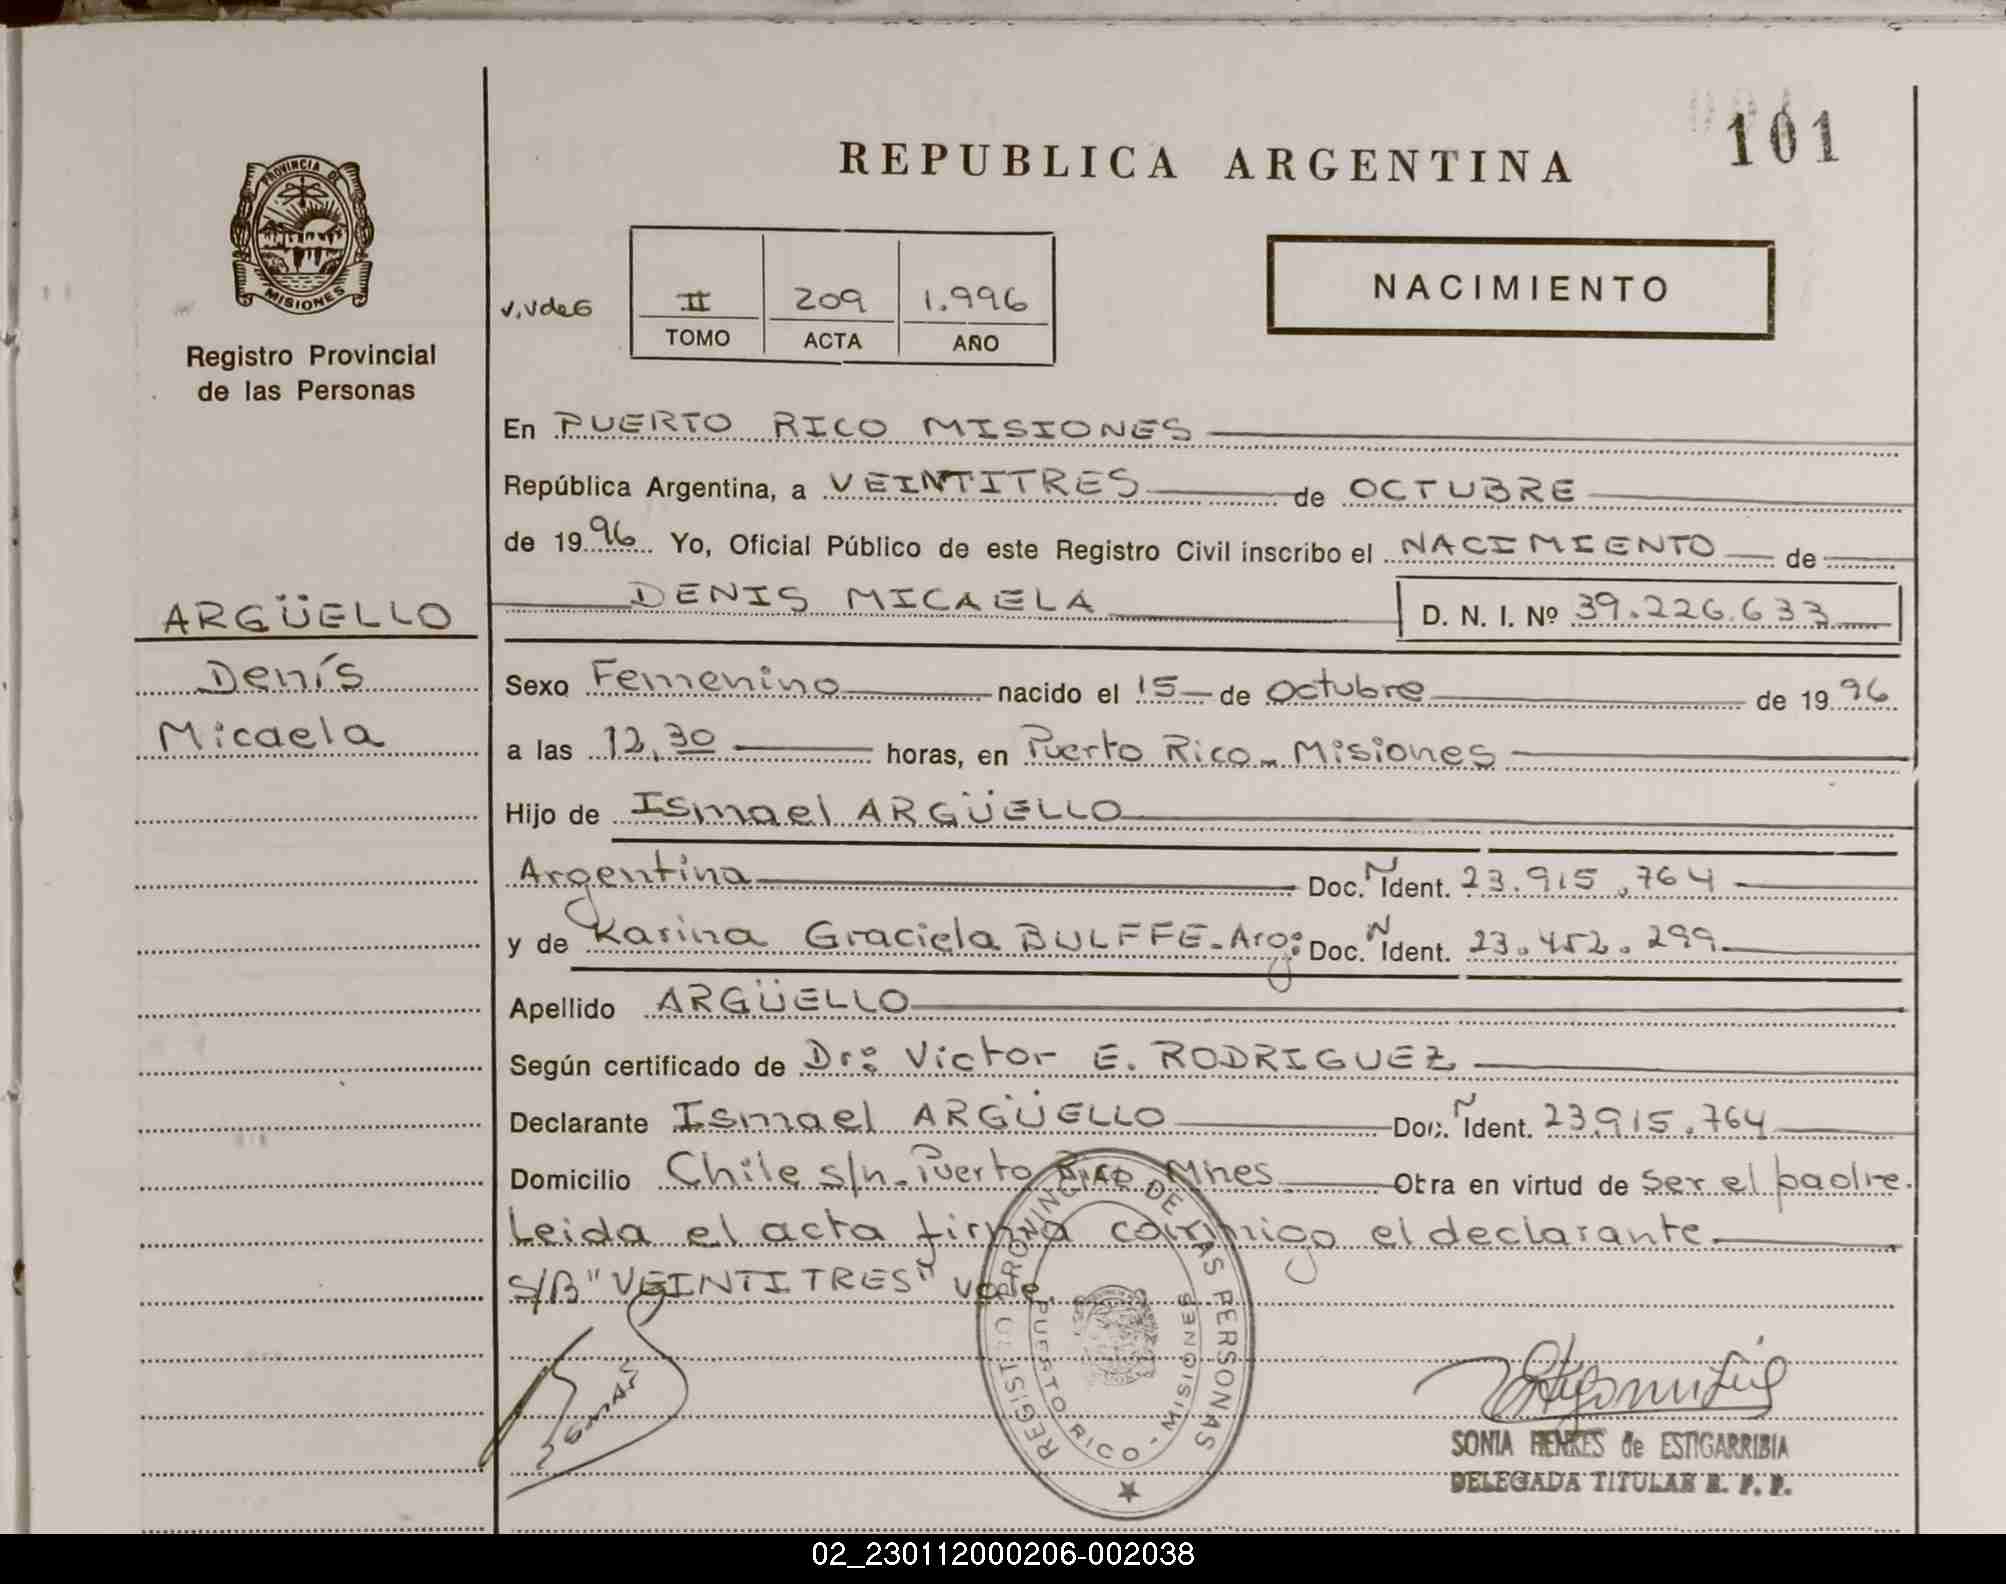 101
REPUBLICA ARGENTINA
PROVINCIA DE
MISIONES
Registro Provincial
de las Personas
v.vdeG
II 209 1.996
TOMO ACTA AÑO
NACIMIENTO
En PUERTO RICO MISIONES
República Argentina, a VEINTITRES de OCTUBRE
de 1996 Yo, Oficial Público de este Registro Civil inscribo el NACIMIENTO de
DENIS MICAELA D. N. I. Nº 39.226.633
ARGÜELLO
Denís
Micaela
Sexo Femenino nacido el 15 de octubre de 1996
a las 12,30 horas, en Puerto Rico - Misiones
Hijo de Ismael ARGÜELLO
Argentina Doc. N Ident. 23.915.764
y de Karina Graciela BULFFE - Arg: Doc. N Ident. 23.452.299
Apellido ARGÜELLO
Según certificado de Dr: Victor E. RODRIGUEZ
Declarante Ismael ARGÜELLO Doc. N Ident. 23.915.764
Domicilio Chile s/n. Puerto Rico Mnes. Obra en virtud de ser el padre.
Leida el acta firma conmigo el declarante.
S/B "VEINTITRES" vale.
REGISTRO PROVINCIAL DE LAS PERSONAS
PUERTO RICO - MISIONES
SONIA HENKES de ESTIGARRIBIA
DELEGADA TITULAR R. P. P.
02_230112000206-002038